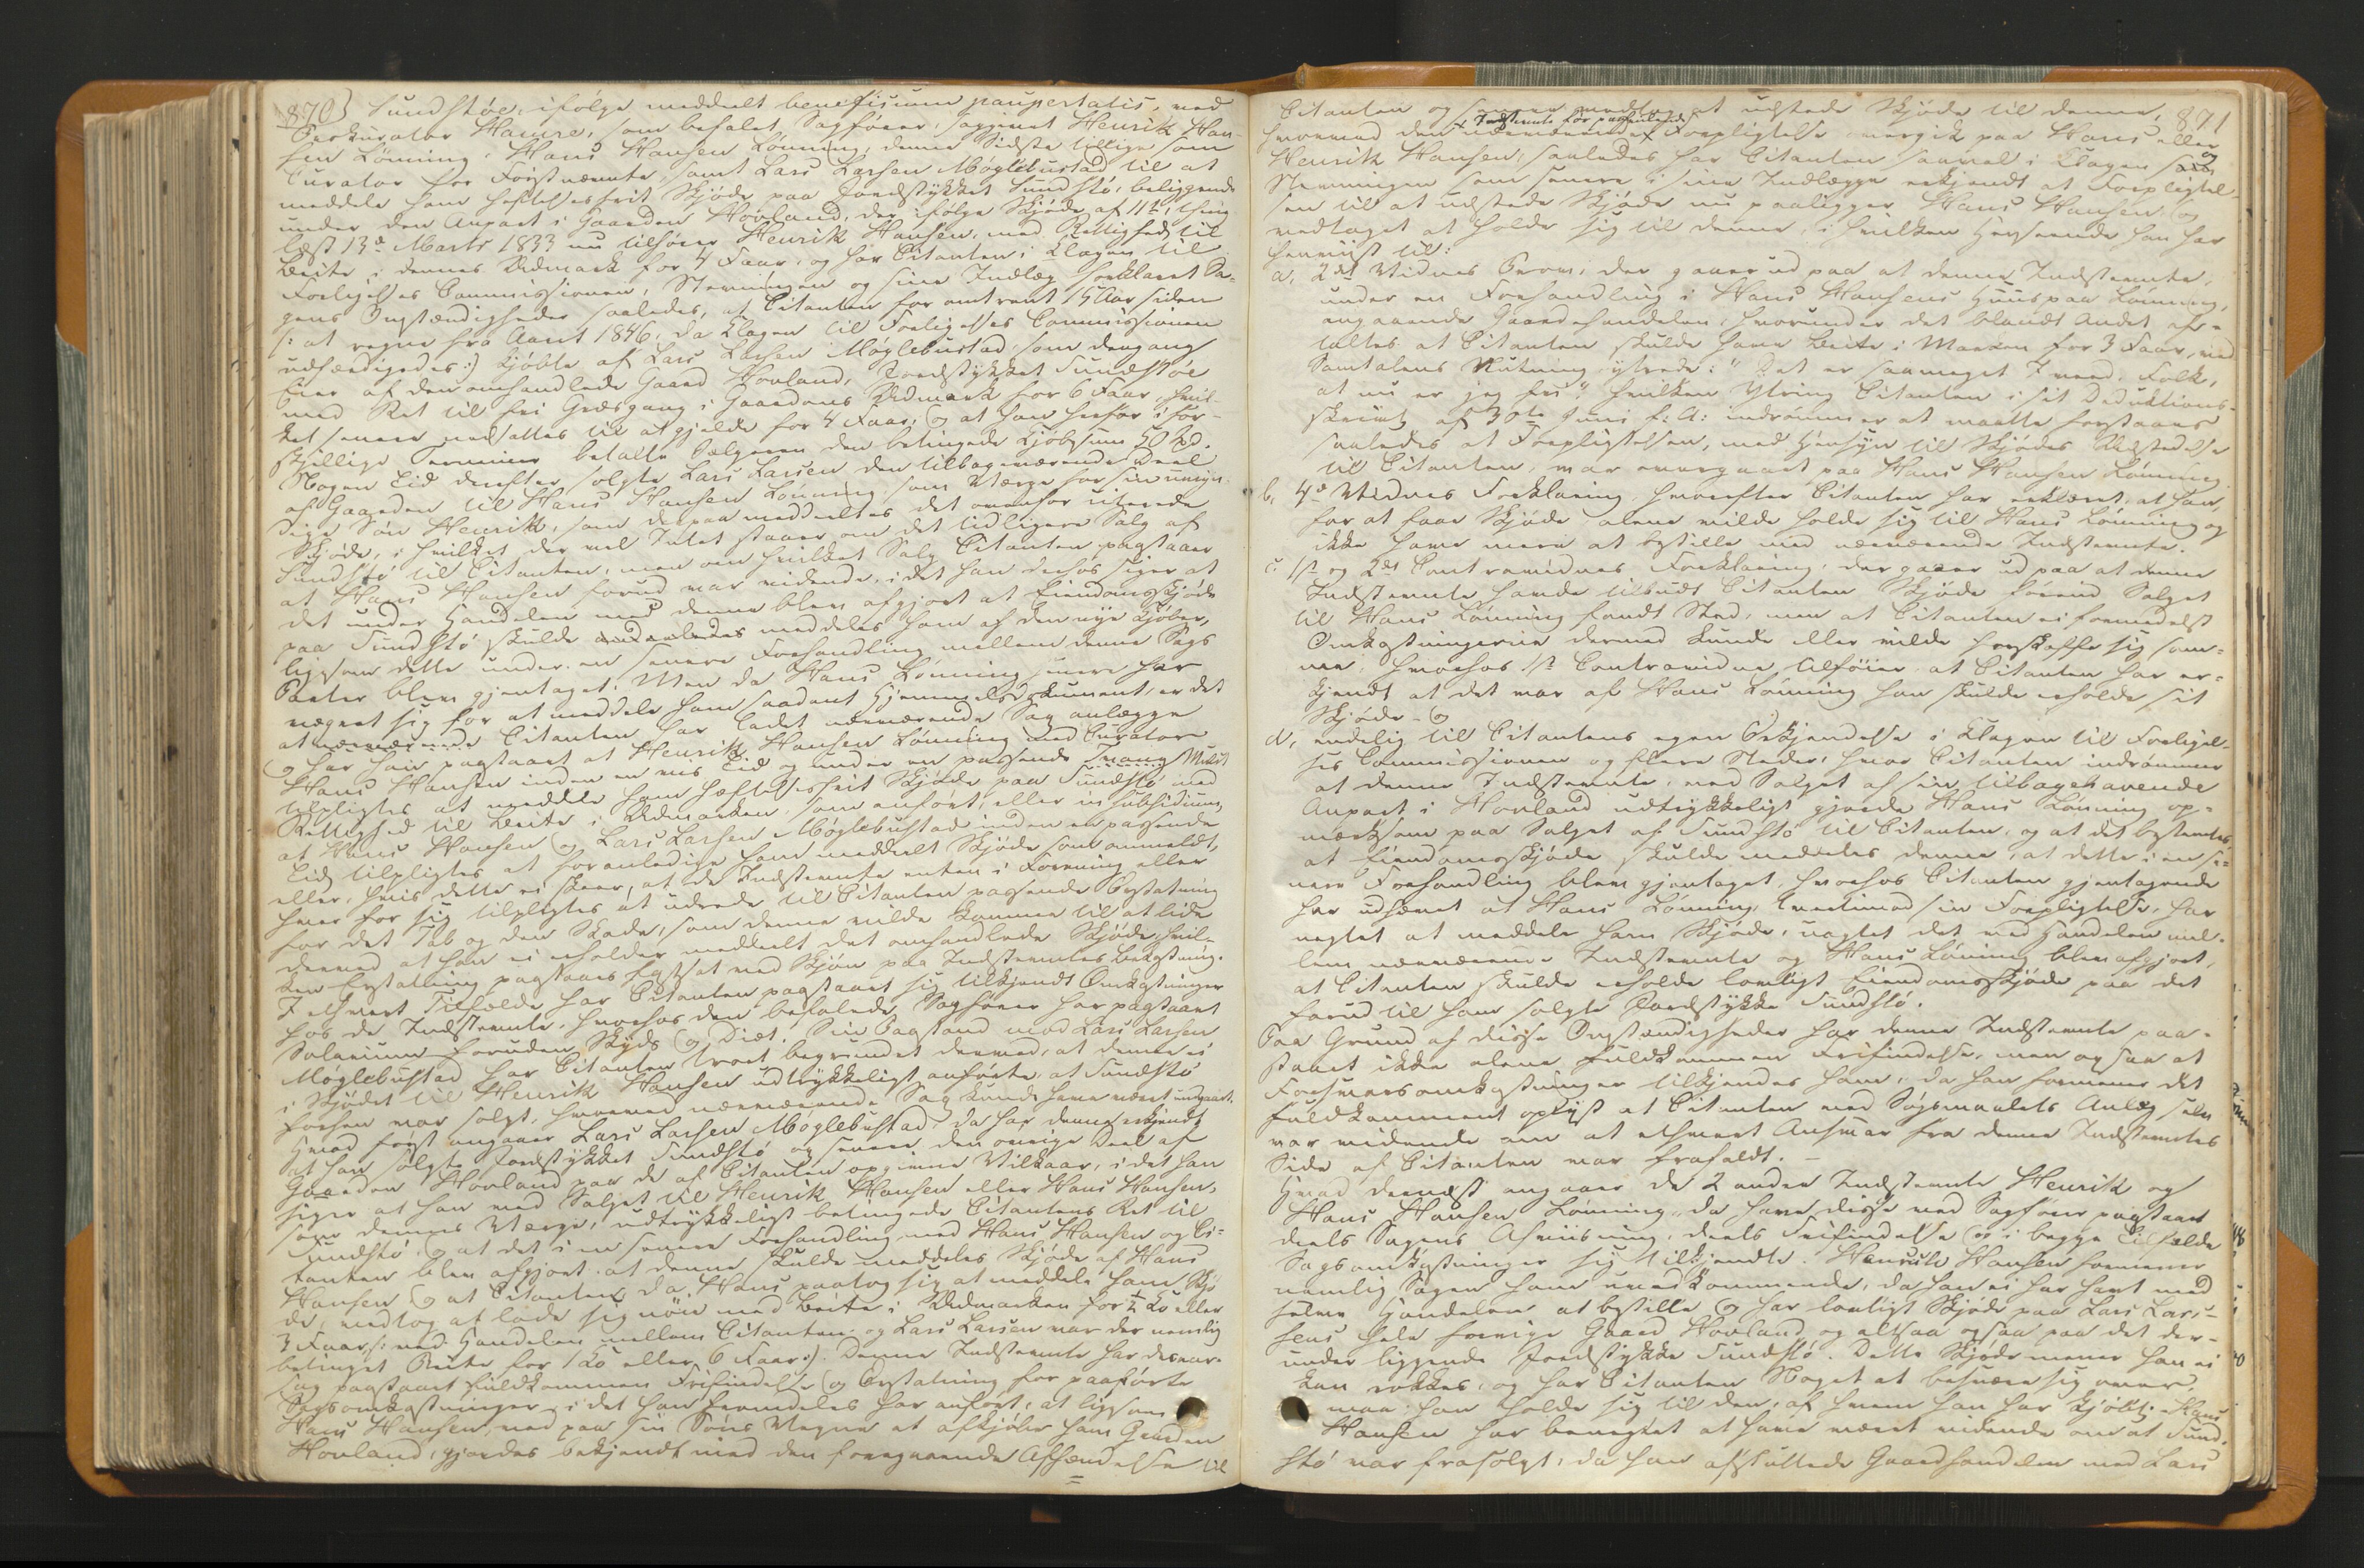 870) Sundstøe, ifølge meddeelt beneficium paupertatis, ved
Prokurator Hamre, som befalet Sagfører, sagsøgt Henrik Han-
sen Lønning, Hans Hansen Lønning, denne Sidste tillige som
Curator for Førstnævnte, samt Lars Larsen Møglebustad til at
meddele ham heftelsesfrit Skjøde paa Jordstykket Sundstø, beliggende
under den Anpart i Gaarden Hovland, der ifølge Skjøde af 11te, thing-
læst 13de Marts 1833 nu tilhører Henrik Hansen, med Rettighed til
Beite i dennes Udmark for 4 Faar, og har Citanten i Klagen til
Forligelses Commissionen, Stevningen og sine Indlæg forklaret Sa-
gens Omstændigheder saaledes, at Citanten for omtrent 15 Aar siden
/: at regne fra Aaret 1846, da Klagen til Forligelses Commissionen
udfærdigedes :/ kjøbte af Lars Larsen Møglebustad, som dengang
Eier af den omhandlede Gaard Hovland, Jordstykket Sundstøe
med Ret til fri Græsgang i Gaardens Udmark for 6 Faar, hvil-
ket senere nedsattes til at gjelde for 4 Faar; og at han herfor i for-
skjellige Terminer betalte Sælgeren den betingede Kjøbesum 50 Spd.
Nogen Tid derefter solgte Lars Larsen den tilbageværende Deel
af Gaarden til Hans Hansen Lønning som Værge for sin umyn-
dige Søn Henrik, som derpaa meddeeltes det ovenfor citerede
Skjøde, i hvilket der vel Intet staaer om det tidligere Salg af
Sundstø til Citanten, men om hvilket Salg Citanten paastaaer
at Hans Hansen forud var vidende, idet han derhos siger at
det under Handelen med denne blev afgjort at Eiendomsskjøde
paa Sundstø skulde meddeles ham af den nye Kjøber,
ligesom dette under en senere Forhandling mellem denne Sags
Parter blev gjentaget. Men da Hans Lønning senere har
vægret sig for at meddele ham saadant Hjemmelsdokument, er det
at Citanten har ladet nærværende Sag anlægge
og har han paastaaet at Henrik Hansen Lønning med Curator
Hans Hansen inden en vis Tid og under en passende Tvangs Mulct
tilpligtes at meddele ham heftelsesfrit Skjøde paa Sundstø med
Rettighed til Beite i Udmarken, som anført, eller in subsidium,
at Hans Hansen og Lars Larsen Møglebustad inden en passende
Tid tilpligtes at foranledige ham meddeelt Skjøde som anmeldt,
eller, hvis dette ei skeer, at de Indstevnte enten i Forening eller
hver for sig tilpligtes at udrede til Citanten passende Erstatning
for det Tab og den Skade, som denne vilde komme til at lide
derved at han ei erholder meddeelt det omhandlede Skjøde, hvil-
ken Erstatning paastaaes fastsat ved Skjøn paa Indstevntes Bekostning.
I ethvert Tilfælde har Citanten paastaaet sig tilkjendt Omkostninger
hos de Indstevnte, hvorhos den befalede Sagfører har paastaaet
Salarium foruden Skyds og Diæt. Sin Paastand mod Lars Larsen
Møglebustad har Citanten troet begrundet derved, at denne ei
i Skjødet til Henrik Hansen udtrykkeligt anførte, at Sundstø
forhen var solgt, hvorved nærværende Sag kunde have været undgaaet.
Hvad først angaaer Lars Larsen Møglebustad, da har denne erkjendt
at han solgte Jordstykket Sundstø og senere den øvrige Deel af
Gaarden Hovland paa de af Citanten opgivne Vilkaar, idet han
siger at han ved Salget til Henrik Hansen eller Hans Hansen,
som dennes Værge, udtrykkeligt betingede Citantens Ret til
Sundstø og at det i en senere Forhandling med Hans Hansen og Ci-
tanten blev afgjort at denne skulde meddeles Skjøde af Hans
Hansen og at Citanten, da Hans paatog sig at meddele ham Skjø-
de, vedtog at lade sig nøie med Beite i Udmarken for ½ Ko eller
3 Faar /: ved Handelen mellem Citanten og Lars Larsen var der nemlig
betinget Beite for 1 Ko eller 6 Faar :/. Denne Indstevnte har desaar-
sag paastaaet fuldkommen Frifindelse og Erstatning for paaførte
Sagsomkostninger, idet han fremdeles har anført, at ligesom
Hans Hansen, ved paa sin Søns Vegne at afkjøbe ham Gaarden
Hovland, gjordes bekjendt med den foregaaende Afhændelse til
871
Citanten og senere vedtog at udstede Skjøde til denne,
hvorved den nærværende × Forpligtelse overgik paa Hans eller
× Indstevnte før paahvilende
Henrik Hansen, saaledes har Citanten saavel i Klagen og
Stevningen som senere i sine Indlægge erkjendt at Forpligtel-
sen til at udstede Skjøde nu paaligger Hans Hansen, og
vedtaget at holde sig til denne, i hvilken Henseende han har
henviist til:
a, 2det Vidnes Prov, der gaaer ud paa at denne Indstevnte,
under en Forhandling i Hans Hansens Huus paa Lønning,
angaaende Gaardehandelen, hvorunder det blandt Andet af-
taltes at Citanten skulde have Beite i Marken for 3 Faar, ved
Samtalens Slutning yttrede: "Det er saameget I veed, Folk,
at nu er jeg fri", hvilken Yttring Citanten i sit Deduktions-
skrivt af 30te Juni f. A. indrømmer at maatte forstaaes
saaledes at Forpligtelsen, med Hensyn til Skjødes Udstedelse
til Citanten, var overgaaet paa Hans Hansen Lønning.
b, 4de Vidnes Forklaring, hvorefter Citanten har erklæret, at han,
for at faae Skjøde, alene vilde holde sig til Hans Lønning og
ikke have mere at bestille med nærværende Indstevnte.
c, 1ste og 2det Contravidnes Forklaring, der gaaer ud paa at denne
Indstevnte havde tilbudt Citanten Skjøde førend Salget
til Hans Lønning fandt Sted, men at Citanten ei formedelst
Omkostningerne dermed kunde eller vilde forskaffe sig sam-
me, hvorhos 1ste Contravidne tilføier at Citanten har er-
kjendt at det var af Hans Lønning han skulde erholde sit
Skjøde - og
d, endelig til Citantens egen Erkjendelse i Klagen til Forligel-
ses Commissionen og flere Steder, hvor Citanten indrømmer
at denne Indstevnte, ved Salget af sin tilbagehavende
Anpart i Hovland udtrykkeligt gjorde Hans Lønning op-
mærksom paa Salget af Sundstø til Citanten, og at det bestemtes,
at Eiendomsskjøde skulde meddeles denne, at dette i en se-
nere Forhandling blev gjentaget, hvorhos Citanten gjentagende
har udhævet at Hans Lønning, tvertimod sin Forpligtelse, har
negtet at meddele ham Skjøde, uagtet det ved Handelen mel-
lem nærværende Indstevnte og Hans Lønning blev afgjort,
at Citanten skulde erholde lovligt Eiendomsskjøde paa det
forud til ham solgte Jordstykke Sundstø.
Paa Grund af disse Omstændigheder har denne Indstevnte paa-
staaet ikke alene fuldkommen Frifindelse, men ogsaa at
Forsvarsomkostninger tilkjendes ham, da han formener det
fuldkomment oplyst at Citanten ved Søgsmaalets Anlæg selv
var vidende om at ethvert Ansvar fra denne Indstevntes
Side af Citanten var frafaldt. -
Hvad dernæst angaaer de 2 andre Indstevnte Henrik og
Hans Hansen Lønning, da have disse ved Sagfører paastaaet
deels Sagens Afviisning, deels Frifindelse og i begge Tilfælde
Sagsomkostninger sig tilkjendte. Henrik Hansen formener
nemlig Sagen ham uvedkommende, da han ei har havt med
selve Handelen at bestille og har lovligt Skjøde paa Lars Lar-
sens hele forrige Gaard Hovland og altsaa ogsaa paa det der-
under liggende Jordstykke Sundstø. Dette Skjøde mener han ei
kan rokkes, og har Citanten Noget at besvære sig over,
maa han holde sig til den, af hvem han har kjøbt; Hans
Hansen har benegtet at have været vidende om at Sund-
stø var frasolgt, da han afsluttede Gaardhandelen med Lars